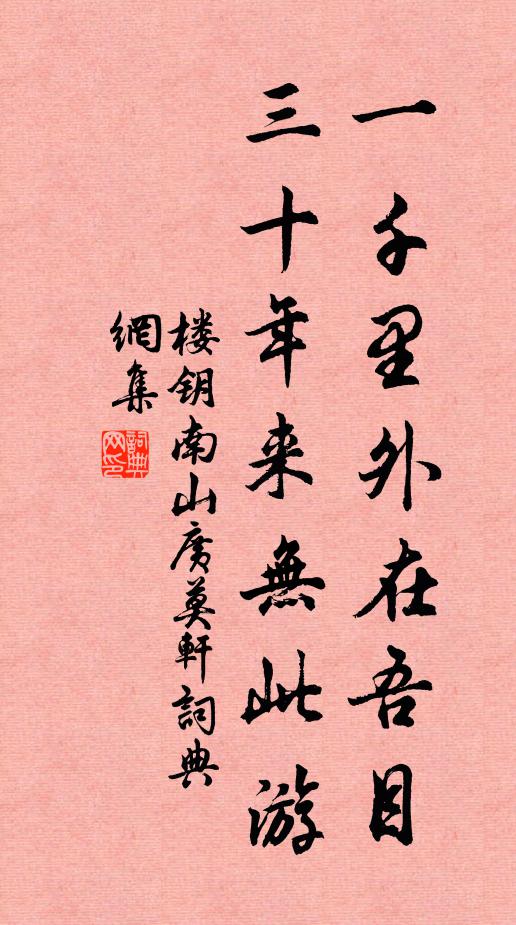 一千里外在吾目
三十年来無此游
楼钥南山廣莫軒詞典
網集
詞典網印